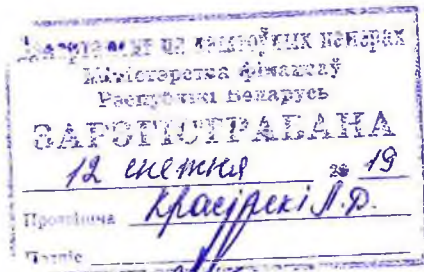 Дэпартамент па каштоўных паперах
Міністэрства фінансаў
Рэспублікі Беларусь
ЗАРЭГІСТРАВАНА
12 снежня 20 19
Прозвішча
Подпіс